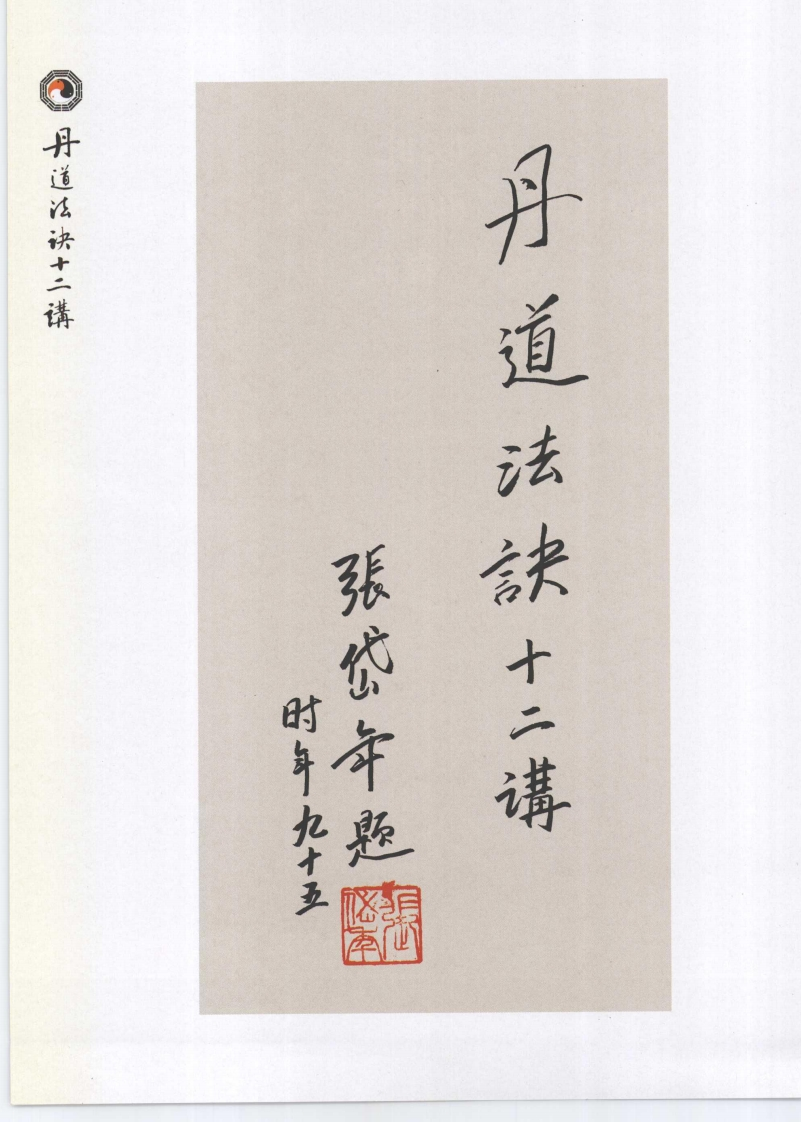 丹道法訣十二講
丹道法訣十二講
張岱年題
时年九十五
張岱年